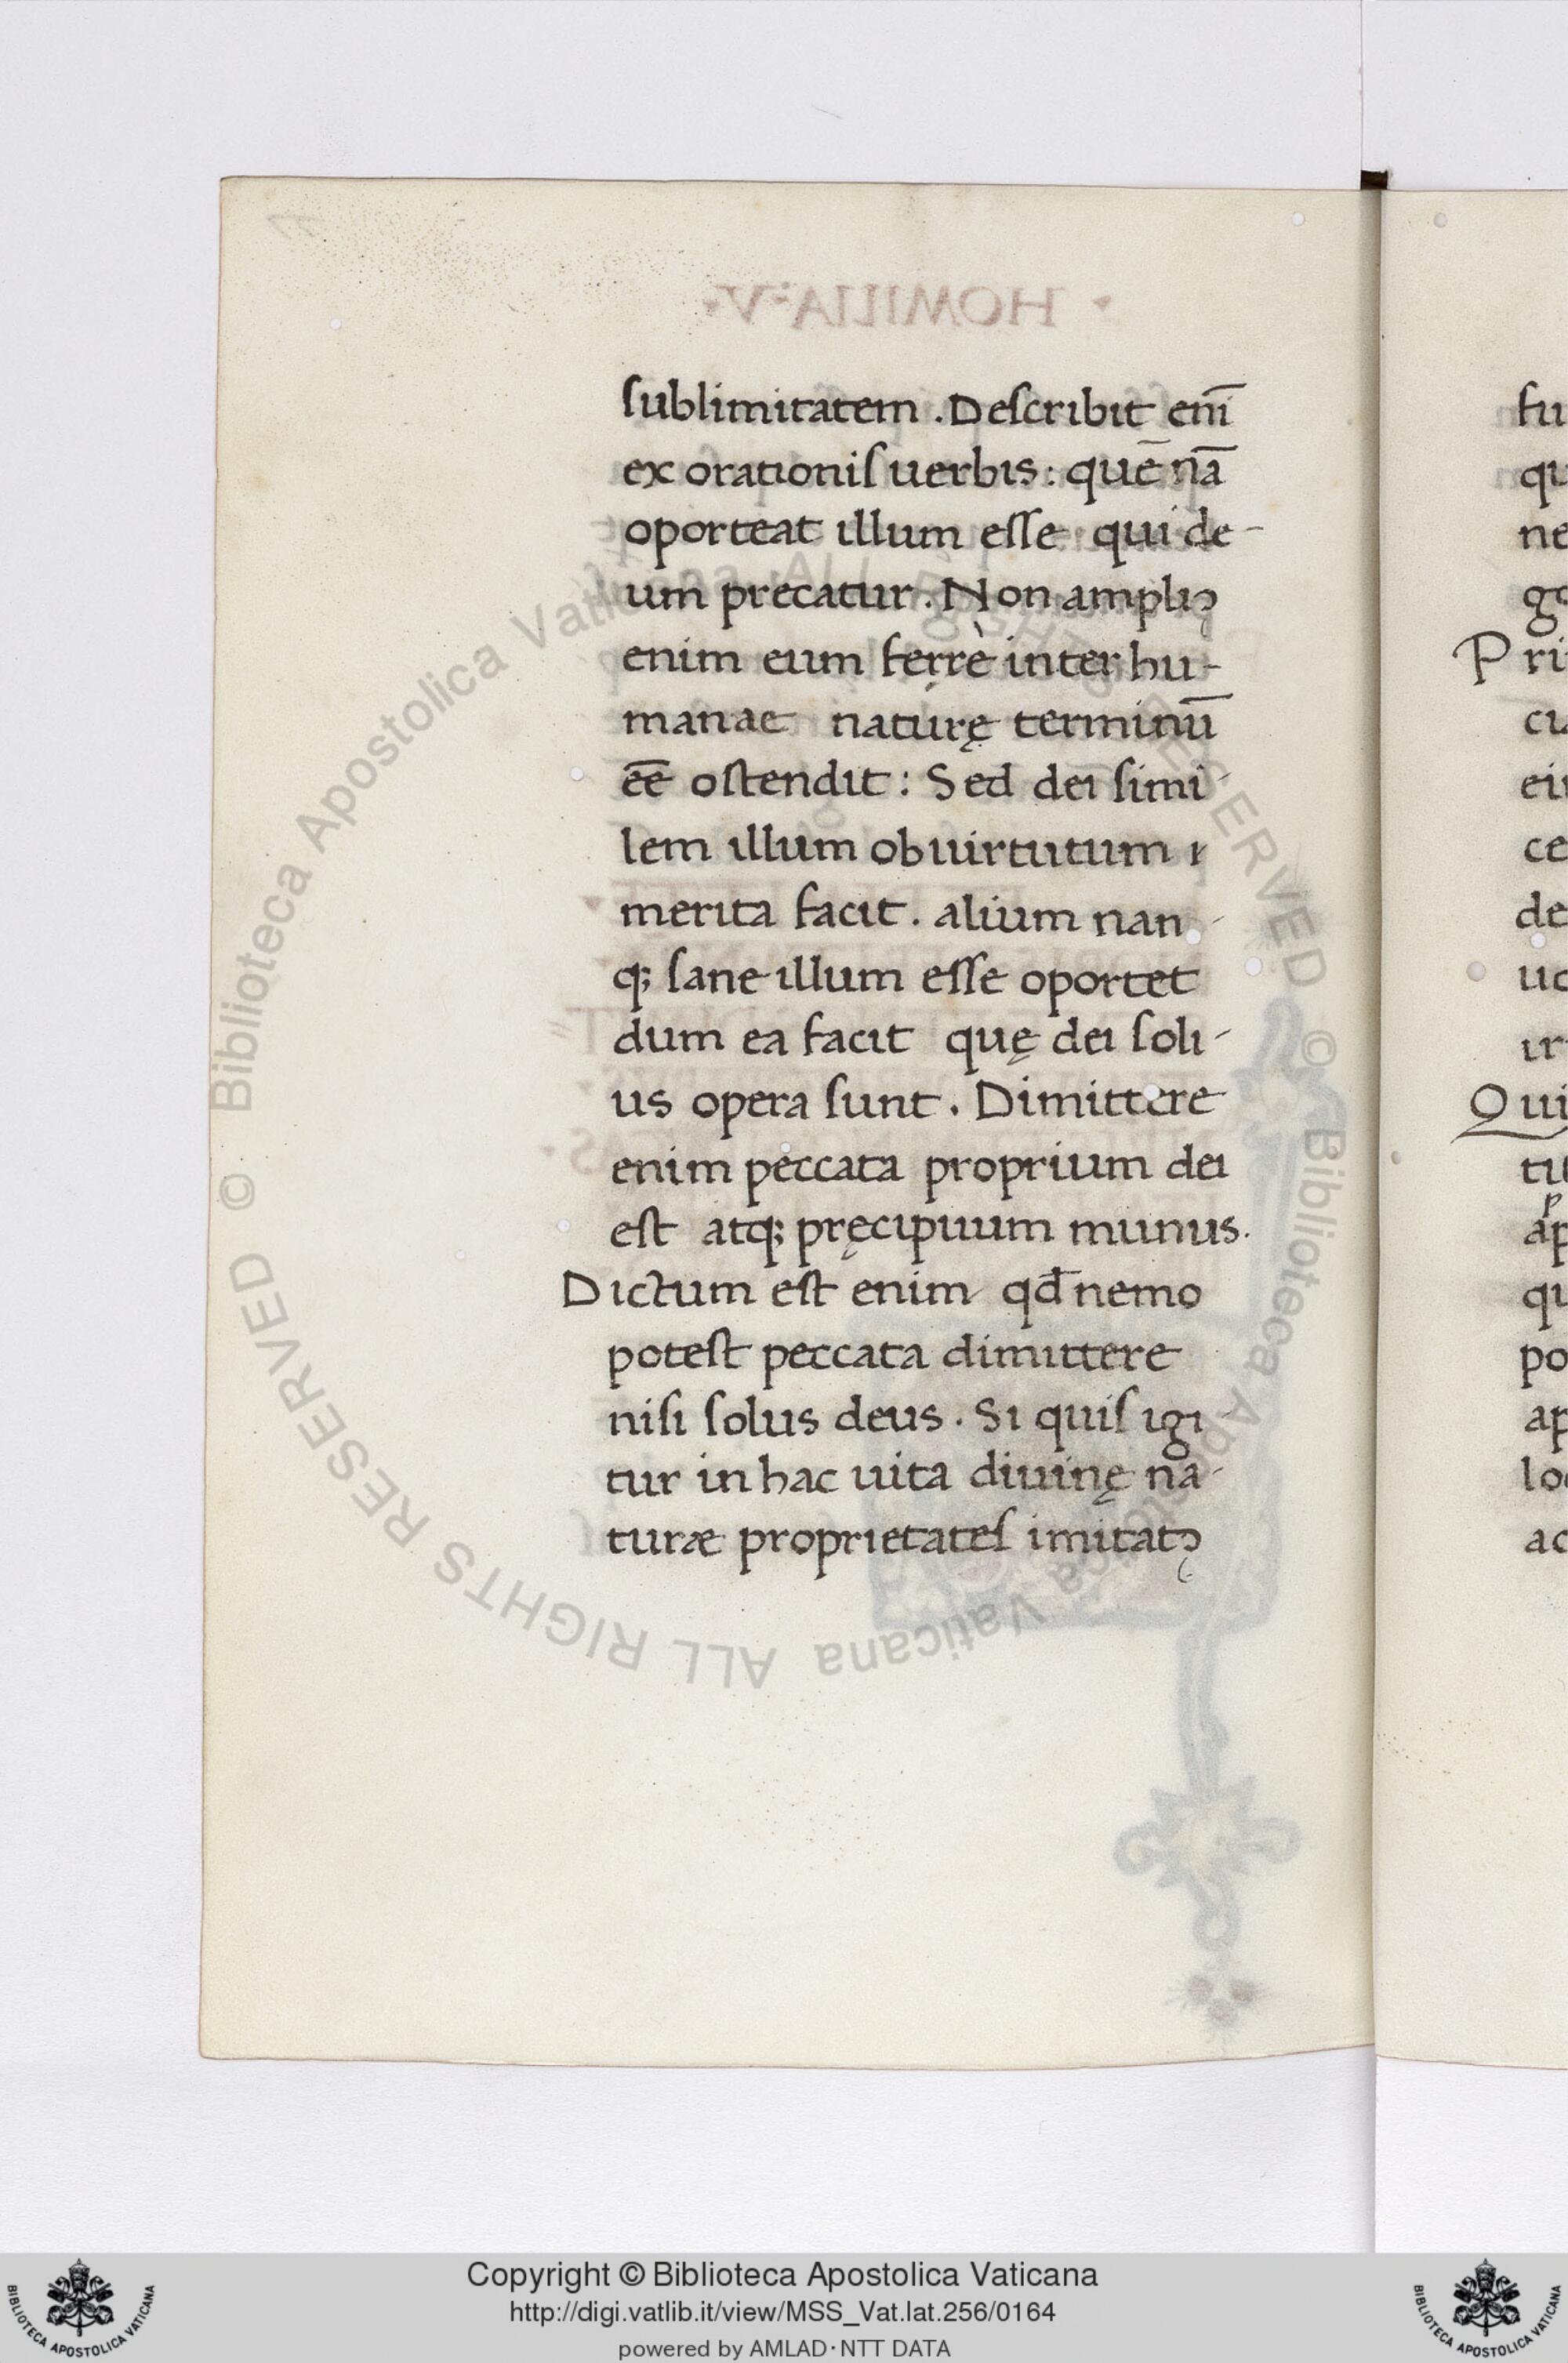 sublimitatem . Describit enī
ex orationis uerbis : quē nā
oporteat illum esse qui de-
um precatur . Non ampliꝰ
enim eum ferrè inter hu-
manae naturę terminū
eē ostendit : Sed dei simi-
lem illum ob uirtutum
merita facit . alium nan-
q; sane illum esse oportet
dum ea facit quę dei soli-
us opera sunt . Dimittere
enim peccata proprium dei
est atq; pręcipuum munus.
Dictum est enim qđ nemo
potest peccata dimittere
nisi solus deus . Si quis igi-
tur in hac uita diuinę na-
turæ proprietates imitatꝰ
fu
qu
ne
Pri
ei
ce
de
Qui
qu
po
lo
ac
© Biblioteca Apostolica Vaticana ALL RIGHTS RESERVED
© Biblioteca Apostolica Vaticana ALL RIGHTS RESERVED
Copyright © Biblioteca Apostolica Vaticana
http://digi.vatlib.it/view/MSS_Vat.lat.256/0164
powered by AMLAD · NTT DATA
BIBLIOTECA APOSTOLICA VATICANA
BIBLIOTECA APOSTOLICA VATICANA